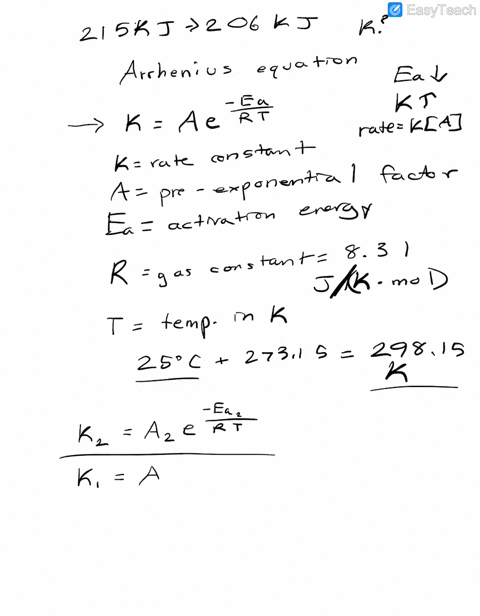 EasyTeach
215KJ → 206 KJ K?
Arrhenius equation
Ea↓
→ K = Ae^(-Ea/RT)
K↑
rate=K[A]
K = rate constant
A = pre-exponential factor
Ea = activation energy
R = gas constant = 8.31
J/(K·mol)
T = temp. in K
25°C + 273.15 = 298.15
K
K₂ = A₂ e^(-Ea₂/RT)
K₁ = A